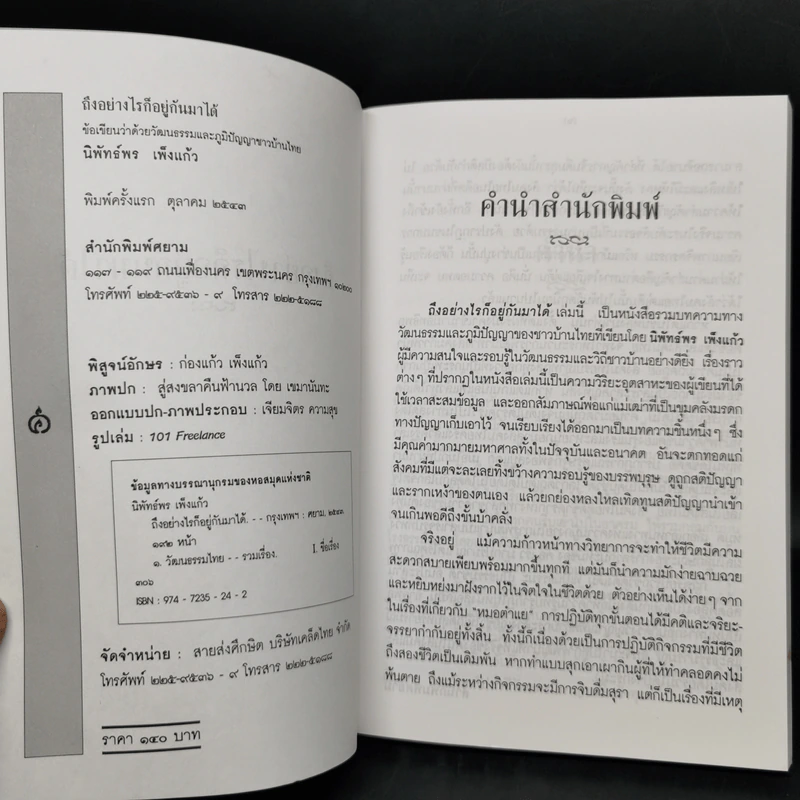 ถึงอย่างไรก็อยู่กันมาได้
ข้อเขียนว่าด้วยวัฒนธรรมและภูมิปัญญาชาวบ้านไทย
นิพัทธ์พร เพ็งแก้ว
พิมพ์ครั้งแรก ตุลาคม ๒๕๔๓
สำนักพิมพ์ศยาม
๑๑๗ - ๑๑๙ ถนนเฟื่องนคร เขตพระนคร กรุงเทพฯ ๑๐๒๐๐
โทรศัพท์ ๒๒๕-๙๕๓๖ - ๙ โทรสาร ๒๒๒-๕๑๘๘
พิสูจน์อักษร : ก่องแก้ว เพ็งแก้ว
ภาพปก : สู่สงขลาคืนฟ้านวล โดย เขมานันทะ
ออกแบบปก-ภาพประกอบ : เจียมจิตร ความสุข
รูปเล่ม : 101 Freelance
ข้อมูลทางบรรณานุกรมของหอสมุดแห่งชาติ
นิพัทธ์พร เพ็งแก้ว
ถึงอย่างไรก็อยู่กันมาได้. - - กรุงเทพฯ : ศยาม, ๒๕๔๓.
๑๙๒ หน้า
๑. วัฒนธรรมไทย - - รวมเรื่อง. I. ชื่อเรื่อง
๓๐๖
ISBN : 974 - 7235 - 24 - 2
จัดจำหน่าย : สายส่งศึกษิต บริษัทเคล็ดไทย จำกัด
โทรศัพท์ ๒๒๕-๙๕๓๖ - ๙ โทรสาร ๒๒๒-๕๑๘๘
ราคา ๑๔๐ บาท
คำนำสำนักพิมพ์
ถึงอย่างไรก็อยู่กันมาได้ เล่มนี้ เป็นหนังสือรวมบทความทาง
วัฒนธรรมและภูมิปัญญาของชาวบ้านไทยที่เขียนโดย นิพัทธ์พร เพ็งแก้ว
ผู้มีความสนใจและรอบรู้ในวัฒนธรรมและวิถีชาวบ้านอย่างดียิ่ง เรื่องราว
ต่างๆ ที่ปรากฏในหนังสือเล่มนี้เป็นความวิริยะอุตสาหะของผู้เขียนที่ได้
ใช้เวลาสะสมข้อมูล และออกสัมภาษณ์พ่อแก่แม่เฒ่าที่เป็นขุมคลังมรดก
ทางปัญญาเก็บเอาไว้ จนเรียบเรียงได้ออกมาเป็นบทความชิ้นหนึ่งๆ ซึ่ง
มีคุณค่ามากมายมหาศาลทั้งในปัจจุบันและอนาคต อันจะตกทอดแก่
สังคมที่มีแต่จะละเลยทิ้งขว้างความรอบรู้ของบรรพบุรุษ ดูถูกสติปัญญา
และรากเหง้าของตนเอง แล้วยกย่องหลงใหลเทิดทูนสติปัญญานำเข้า
จนเกินพอดีถึงขั้นบ้าคลั่ง
จริงอยู่ แม้ความก้าวหน้าทางวิทยาการจะทำให้ชีวิตมีความ
สะดวกสบายเพียบพร้อมมากขึ้นทุกที แต่มันก็นำความมักง่ายฉาบฉวย
และหยิบหย่งมาฝังรากไว้ในจิตใจในชีวิตด้วย ตัวอย่างเห็นได้ง่ายๆ จาก
ในเรื่องที่เกี่ยวกับ "หมอตำแย" การปฏิบัติทุกขั้นตอนได้มีคติและจริยะ-
จรรยากำกับอยู่ทั้งสิ้น ทั้งนี้ก็เนื่องด้วยเป็นการปฏิบัติกิจกรรมที่มีชีวิต
ถึงสองชีวิตเป็นเดิมพัน หากทำแบบสุกเอาเผากินผู้ที่ให้ทำคลอดคงไม่
พ้นตาย ถึงแม้ระหว่างกิจกรรมจะมีการจิบดื่มสุรา แต่ก็เป็นเรื่องที่มีเหตุ